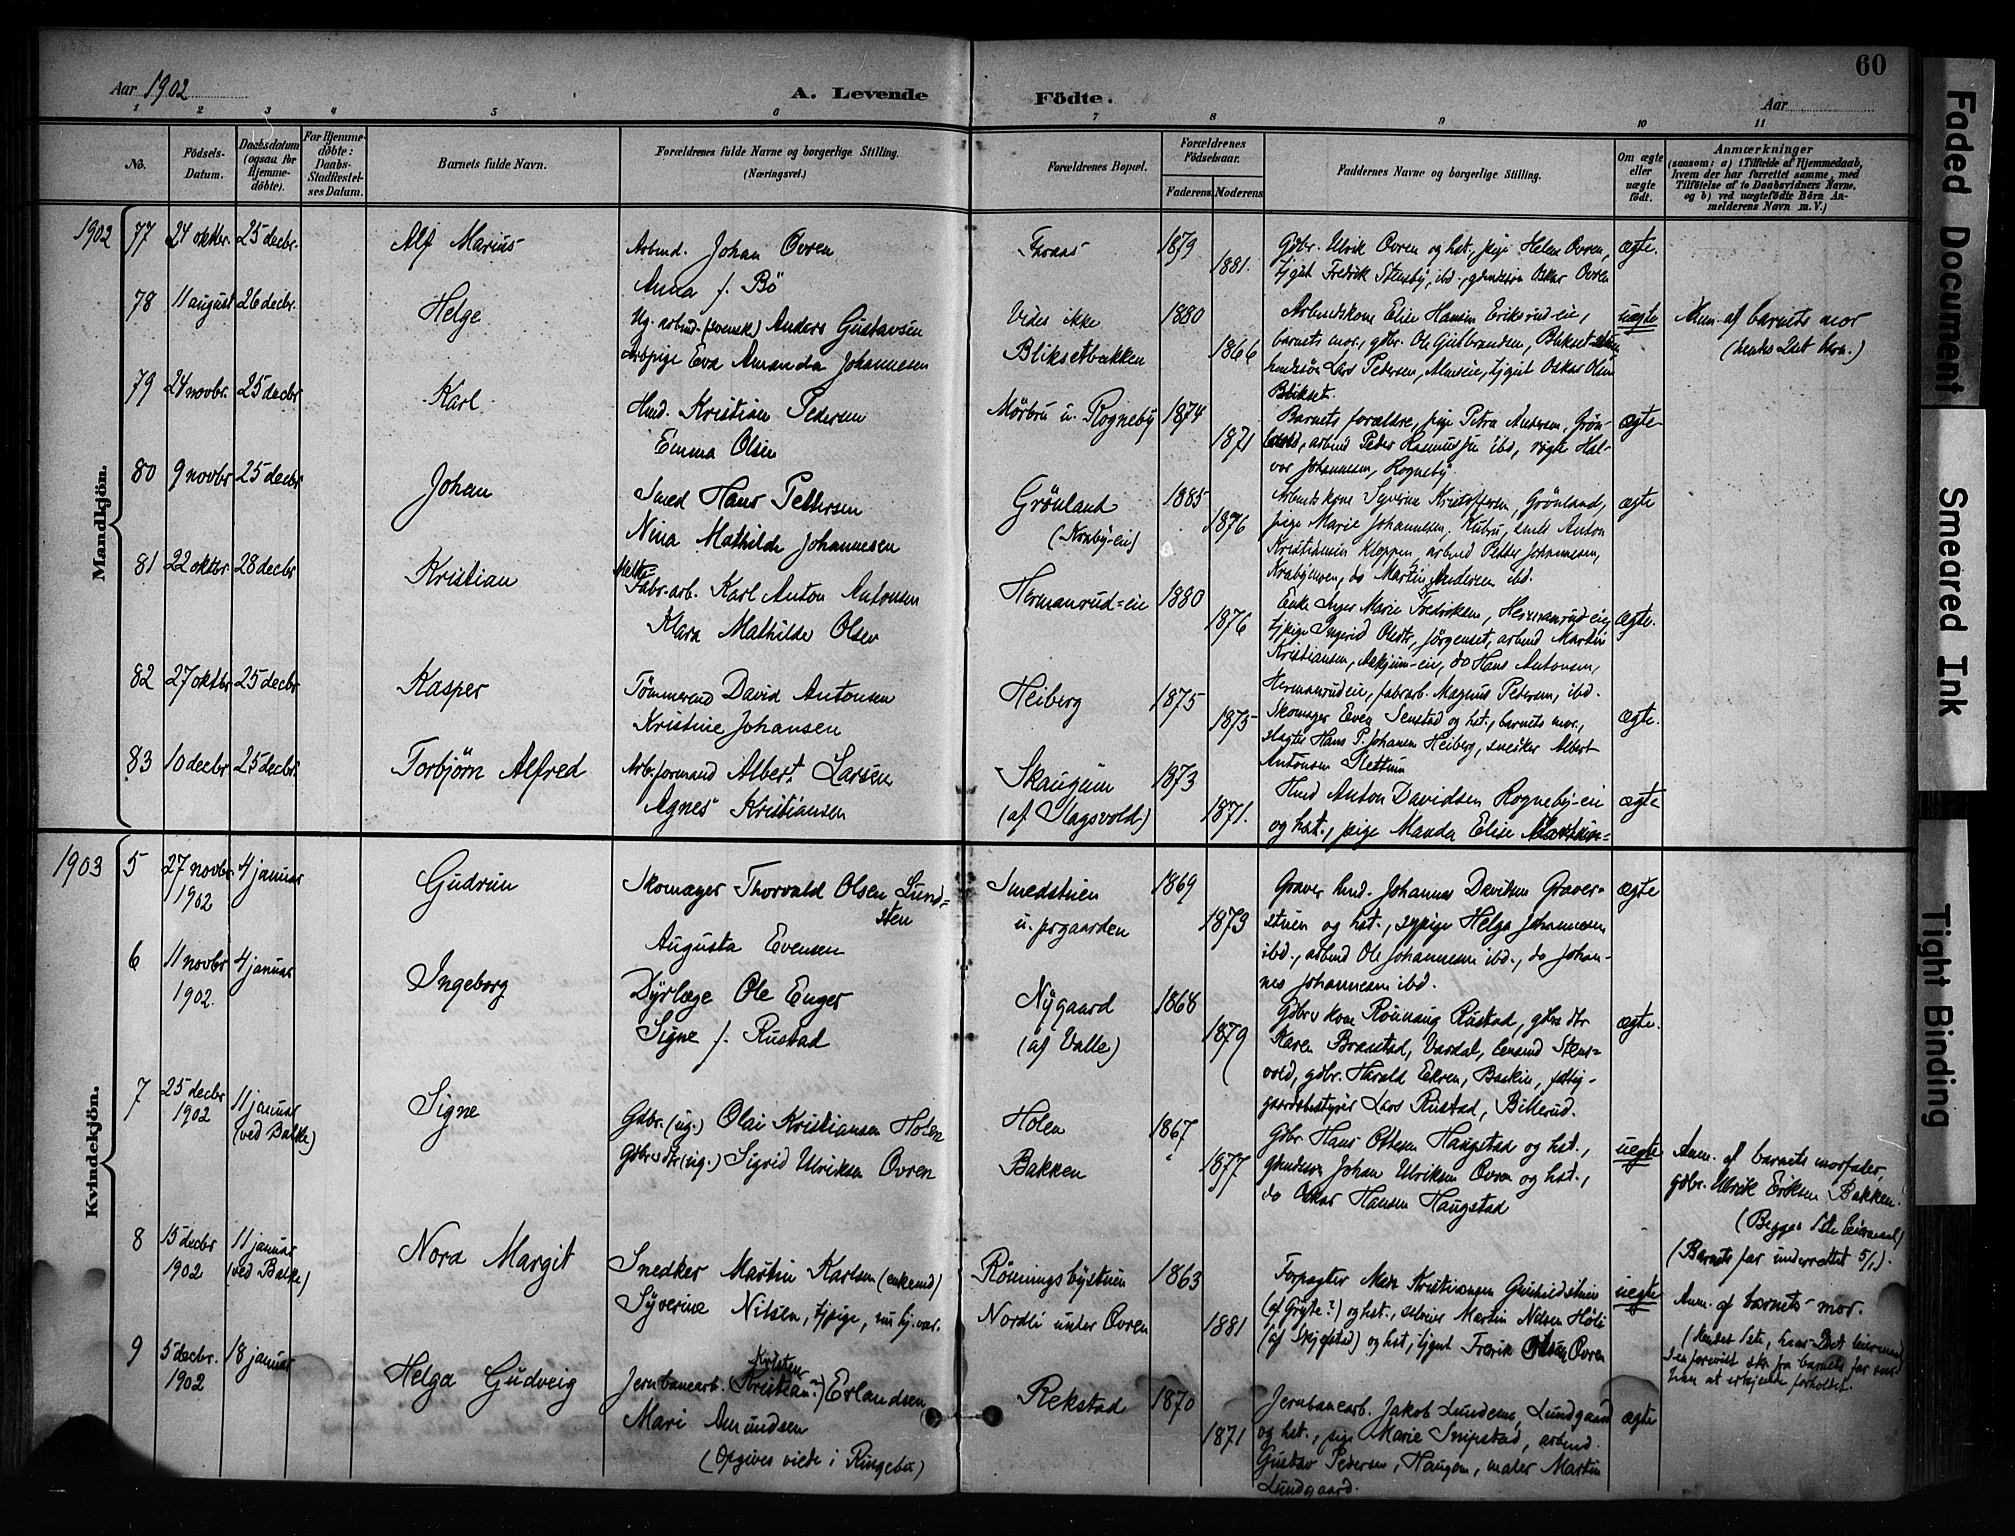 60
Aar 1902
A. Levende Födte.
Aar
1 2 3 4 5 6 7 8 9 10 11
No.
Födsels-Datum.
Daabsdatum (ogsaa for Hjemme-döbte).
For Hjemme-döbte: Daabs-Stadfæstel-ses Datum.
Barnets fulde Navn.
Forældrenes fulde Navne og borgerlige Stilling. (Næringsvei.)
Forældrenes Bopæl.
Forældrenes Födselsaar.
Faderens. Moderens.
Faddernes Navne og borgerlige Stilling.
Om ægte eller uægte født.
Anmærkninger
(saasom: a) i Tilfælde af Hjemmedaab, hvem der har forrettet samme, med Tilföielse af to Daabsvidners Navne, og b) ved uægtefödte Börn An-melderens Navn m. V.)
Mandkjön.
1902 77 24 oktbr. 25 decbr. Alf Marius
Arbmd. Johan Ovren
Anna f. Bö
1879
1881.
Gdbr. Ulrik Ovren og hst., pige Helen Ovren,
tjgut Fredrik Stensby, ibd., gdmdssön Oskar Ovren
ægte.
78 11 august 26 decbr. Helge
Ug. arbmd. (svensk) Anders Gustavsen
Arbpige Eva Amanda Johannesen
Vides ikke
Bliksetbakken
1880
1866
Arbmdskone Elise Hansen Eriksrudeie,
barnets mor, gdbr. Ole Gulbrandsen, Blikset
Lars Pedersen, tjgut Oskar Olsen
Blikset.
uægte
Anm. af barnets mor
(hendes 2det barn.)
79 24 novbr. 25 decbr Karl
Hmd. Kristian Pedersen
Emma Olsen
Mörbru u. Rogneby
1874
1871
Barnets forældre, pige Petra Andersen, Grön-
land, arbmd Peder Rasmussen ibd, røgter Hal-
vor Johannesen, Rogneby.
ægte
80 9 novbr 25 decbr Johan
Smed Hans Pettersen
Nina Mathilde Johannesen
Grönland
(Kraby-eie)
1885
1876
Arbmdskone Syverine Kristoffersen, Grönland,
pige Marie Johannesen, Kubru, smed Anton
Kristiansen Kloppen, arbmd Petter Johannesen,
Krabyensen, do Martin Andersen ibd.
ægte
81 22 oktbr 28 decbr Kristian
Melke-
Fabr.-arb. Karl Anton Antonsen
Klara Mathilde Olsen
Hermanrud-eie
1880
1876
Enke Inger Marie Fredriksen, Hermanrud-eie,
tjpige Ingerid Olsdtr, Jörgenset, arbmd Martin
Kristiansen, Askjum-eie, do Hans Antonsen,
Hermanrudeie, fabrarb. Magnus Pedersen, ibd.
ægte.
82 27 oktbr 25 decbr Kasper
Tömmermd David Antonsen
Kristine Johansen
Heiberg
1875
1875
Skomager Even Senstad og hst., barnets mor,
slagter Hans P. Johansen Heiberg, snekker Albert
Antonsen Slettum
ægte.
83 10 decbr 25 decbr. Torbjörn Alfred
Arb.formand Albert Larsen
Agnes Kristiansen
Skaugum
(af Hagsvold)
1873
1871.
Hmd Anton Davidsen Rogneby-eie
og hst., pige Manda Elise Martin-
ægte
Kvindekjön.
1903 5 27 novbr. 1902 4 januar Gudrun
Skomager Thorvald Olsen Lund-
sten
Augusta Evensen
Smedstuen
u. prgaarden
1869
1873
Graver hmd. Johannes Davidsen Graver-
stuen og hst., sypige Helga Johannesen
ibd., arbmd Ole Johannesen ibd., do Johan-
nes Johannesen ibd.
ægte
6 11 novbr 1902. 4 januar Ingeborg
Dyrlæge Ole Enger
Signe f. Rustad
Nygaard
(af Valle)
1868
1879
Gdbrs kone Rönnaug Rustad, gdbrs dtr
Karen Branstad, Vardal, lensmd Stens-
vold, gdbr. Harald Ekren, Baskin, fattig-
gaardsbestyrer Lars Rustad, Billerud.
ægte.
7 25 decbr 1902 11 januar (ved Balke) Signe
Gdbr. (ug.) Olai Kristiansen Holen
Gdbrs dtr (ug.) Sigrid Ulriksen Ovren
Holen
Bakken
1867
1877
Gdbr. Hans Ottesen Haugstad og hst.,
gdmdssön Johan Ulriksen Ovren og hst.,
do Oskar Hansen Haugstad
uægte
Anm. af barnets morfader,
gdbr. Ulrik Eriksen Bakken.
(Begges 1ste leiermaal)
(Barnets far underrettet 5/1).
8 15 decbr 1902 11 januar (ved Balke) Nora Margit
Snedker Martin Karlsen (enkemd)
Syverine Nilsen, tjpige,
Rönningsbystuen
Nordli under Ovren
1863
1881
Forpagter Mads Kristiansen Gunhildstuen
(af Gryte?) og hst., Martin Nilsen Höli
(af Skjefstad) og hst, tjgut Fredrik Olsen Ovren
uægte
Anm. af barnets mor.
(Hendes 1ste, hans 2det leiermaal
I en forevist skr. fra barnets far
han at erkjende forholdet.
9 5 decbr. 1902 18 januar Helga Gudveig
Kristen
Jernbanearb. (Kristian?) Erlandsen
Mari Amundsen
(Opgives viede i Ringebu)
Rekstad
1870
1871
Jernbanearb. Jakob Lundene, Lundgaard
og hst., pige Marie Snipstad, arbmd.
Gustav Pedersen, Haugom, maler Martin
Lundgaard.
ægte
Faded Document
Smeared Ink
Tight Binding